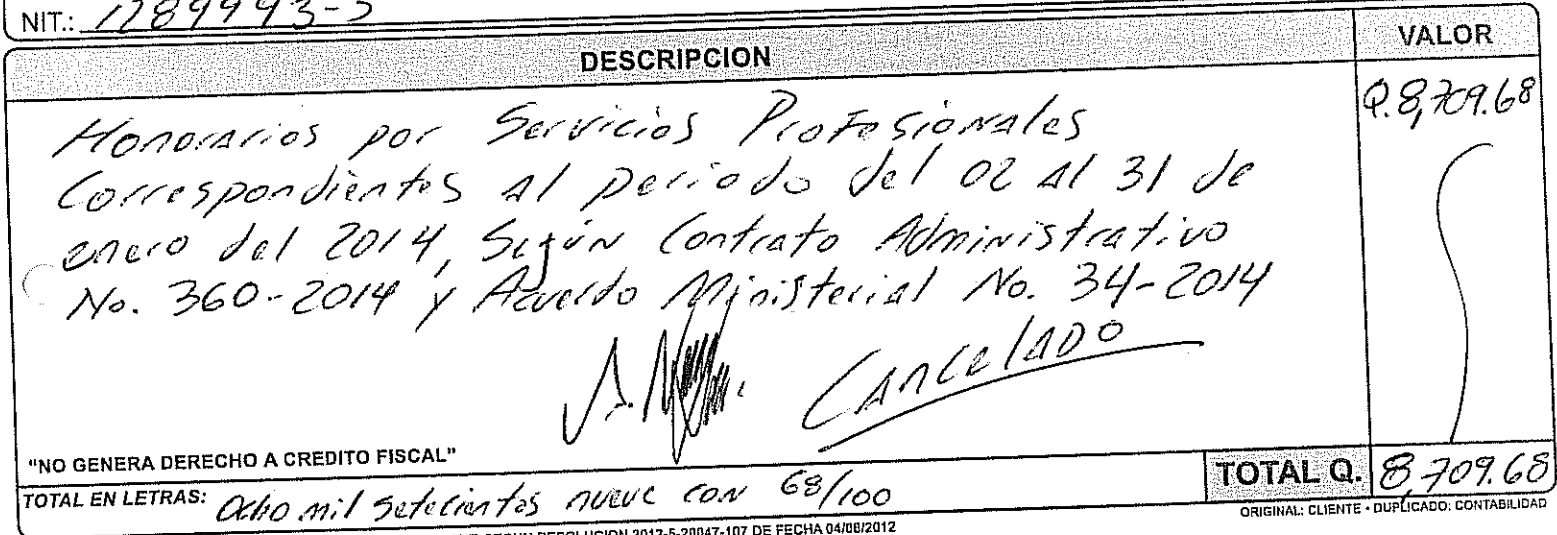 NIT.: 1289993-5
DESCRIPCION
VALOR
Honorarios por Servicios Profesionales
Q.8,709.68
Correspondientes al periodo del 02 al 31 de
enero del 2014, Según Contrato Administrativo
No. 360-2014 y Acuerdo Ministerial No. 34-2014
Cancelado
"NO GENERA DERECHO A CREDITO FISCAL"
TOTAL EN LETRAS: Ocho mil setecientos nueve con 68/100
TOTAL Q. 8,709.68
ORIGINAL: CLIENTE - DUPLICADO: CONTABILIDAD
RESOLUCION 2012-5-20047-107 DE FECHA 04/06/2012